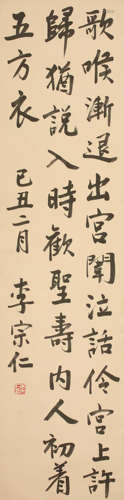 歌喉漸退出宮闈泣話伶官上許
歸猶說入時歡聖壽內人初着
五方衣
己丑二月 李宗仁